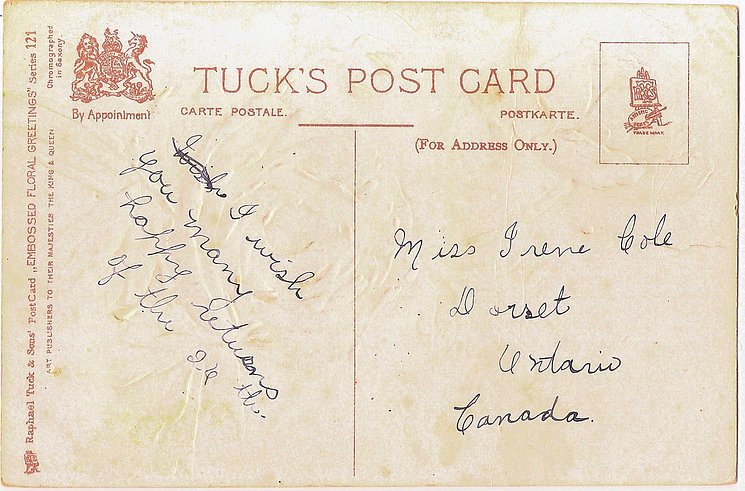 Raphael Tuck & Sons' PostCard „EMBOSSED FLORAL GREETINGS" Series 121
ART PUBLISHERS TO THEIR MAJESTIES THE KING & QUEEN
Chromographed
in Saxony.
By Appointment
TUCK'S POST CARD
CARTE POSTALE.
POSTKARTE.
(FOR ADDRESS ONLY.)
TRADE MARK
I wish
you many
happy returns
of the 26 th.
Miss Irene Cole
Dorset
Ontario
Canada.